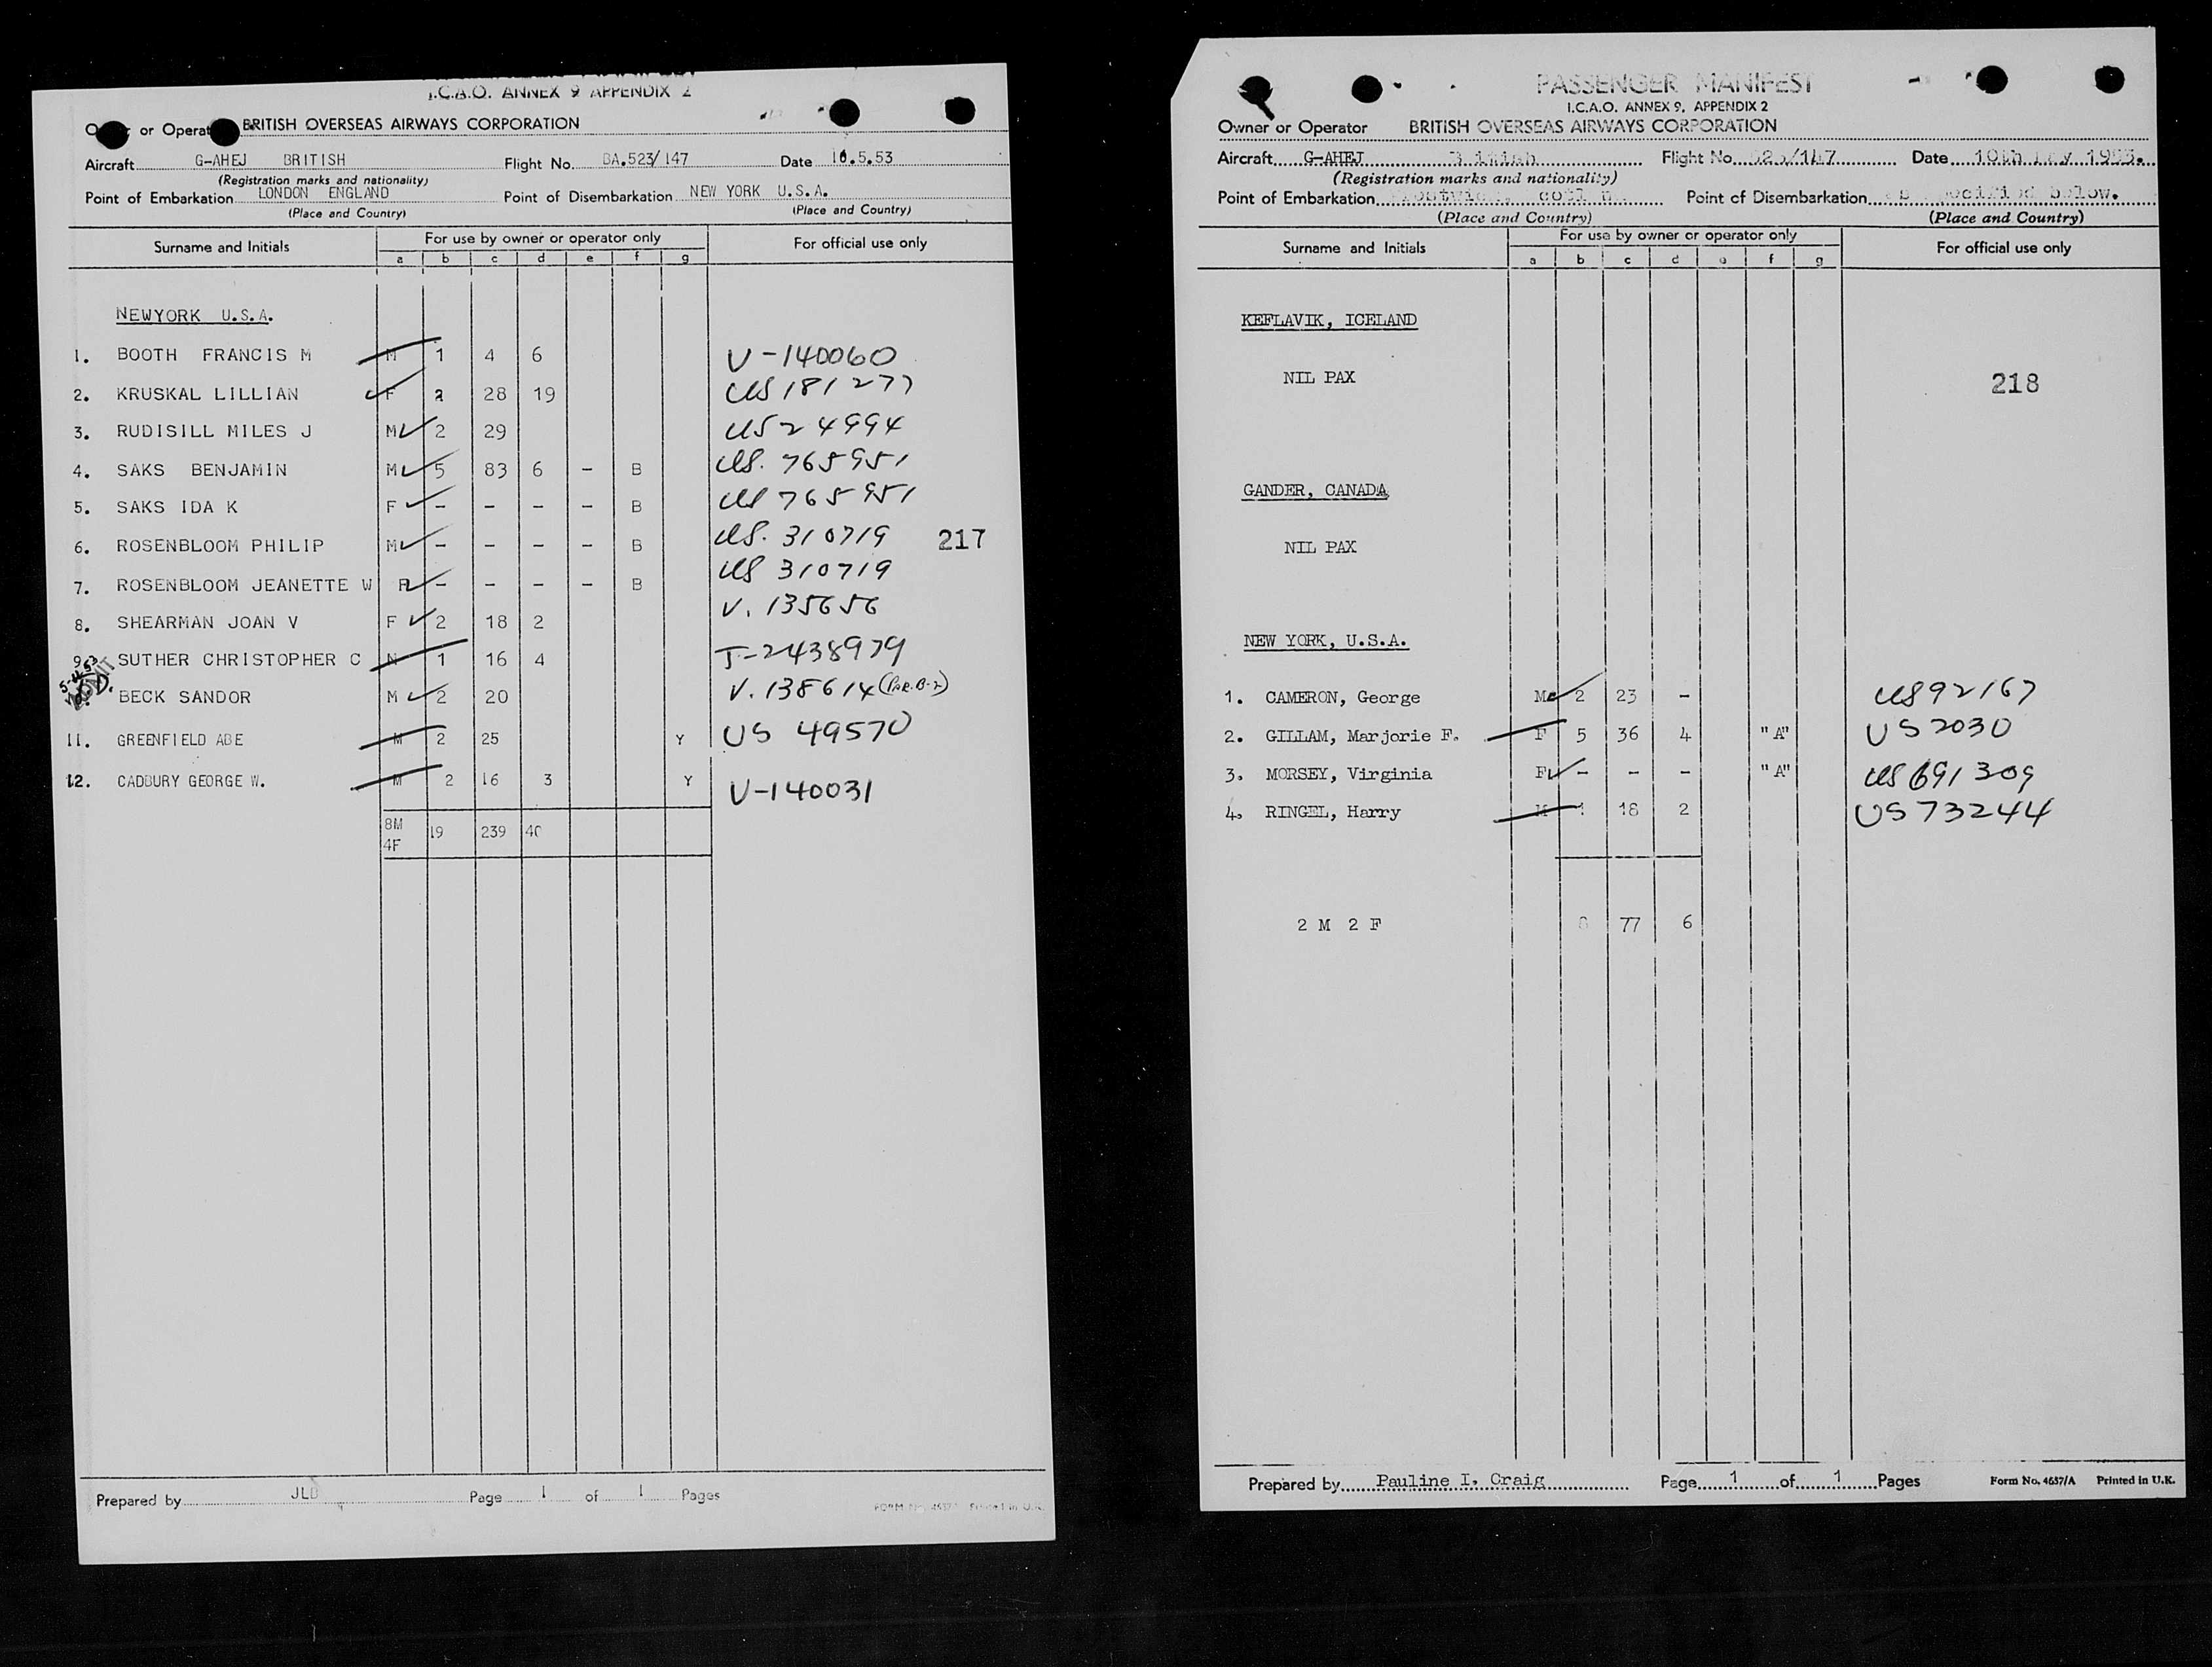 I.C.A.O. ANNEX 9 APPENDIX 2
or Operat BRITISH OVERSEAS AIRWAYS CORPORATION
Aircraft G-AHEJ BRITISH Flight No. BA.523/147 Date 10.5.53
(Registration marks and nationality)
Point of Embarkation LONDON ENGLAND Point of Disembarkation NEW YORK U.S.A.
(Place and Country) (Place and Country)
Surname and Initials For use by owner or operator only For official use only
a b c d e f g
NEWYORK U.S.A.
1. BOOTH FRANCIS M M 1 4 6 V-140060
2. KRUSKAL LILLIAN F 2 28 19 US 181277
3. RUDISILL MILES J M 2 29 US 24994
4. SAKS BENJAMIN M 5 83 6 - B US. 765951
5. SAKS IDA K F - - - - B US 765951
6. ROSENBLOOM PHILIP M - - - - B US. 310719 217
7. ROSENBLOOM JEANETTE W F - - - - B US 310719
8. SHEARMAN JOAN V F 2 18 2 V. 135656
9. SUTHER CHRISTOPHER C M 1 16 4 T-2438979
ADMIT
BECK SANDOR M 2 20 V. 138614 (PAR. B-2)
11. GREENFIELD ABE M 2 25 Y US 49570
12. CADBURY GEORGE W. M 2 16 3 Y V-140031
8M
4F 19 239 40
Prepared by JLD Page 1 of 1 Pages
FORM No. 4657/A Printed in U.K.
PASSENGER MANIFEST
I.C.A.O. ANNEX 9, APPENDIX 2
Owner or Operator BRITISH OVERSEAS AIRWAYS CORPORATION
Aircraft G-AHEJ British Flight No. 523/147 Date 10th May 1953.
(Registration marks and nationality)
Point of Embarkation Point of Disembarkation as specified below.
(Place and Country) (Place and Country)
Surname and Initials For use by owner or operator only For official use only
a b c d e f g
KEFLAVIK, ICELAND
NIL PAX 218
GANDER, CANADA
NIL PAX
NEW YORK, U.S.A.
1. CAMERON, George M 2 23 - US 92167
2. GILLAM, Marjorie F. F 5 36 4 "A" US 2030
3. MORSEY, Virginia F - - - "A" US 691309
4. RINGEL, Harry M 1 18 2 US 73244
2 M 2 F 8 77 6
Prepared by Pauline I. Craig Page 1 of 1 Pages Form No. 4657/A Printed in U.K.